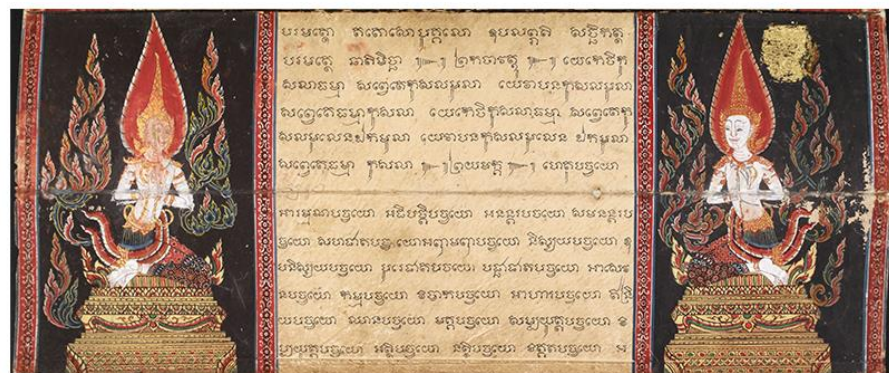 បរមត្ថោ តតោសោបុគ្គលោ ឧបលព្ភតិ សច្ឆិកត្ថ
បរមត្ថេ យេកេចិកុ
សលាធម្មា សព្វេតេកុសលមូលា យេវាបនកុសលមូលា
សព្វេតេធម្មាកុសលា យេកេចិកុសលាធម្មា សព្វេតេកុ
សលមូលេនឯកមូលា យេវាបនកុសលមូលេន ឯកមូលា
សព្វេតេធម្មា កុសលា ហេតុបច្ចយោ
អារម្មណបច្ចយោ អធិបតិបច្ចយោ អនន្តរបច្ចយោ សមនន្តរប
ច្ចយោ សហជាតបច្ចយោអញ្ញមញ្ញបច្ចយោ និស្សយបច្ចយោ ឧ
បនិស្សយបច្ចយោ បុរេជាតបច្ចយោ បច្ឆាជាតបច្ចយោ អាសេវ
នបច្ចយោ កម្មបច្ចយោ វិបាកបច្ចយោ អាហារបច្ចយោ ឥន្ទ្រិ
យបច្ចយោ ឈានបច្ចយោ មគ្គបច្ចយោ សម្បយុត្តបច្ចយោ វិ
ប្បយុត្តបច្ចយោ អត្ថិបច្ចយោ នត្ថិបច្ចយោ វិគតបច្ចយោ អ